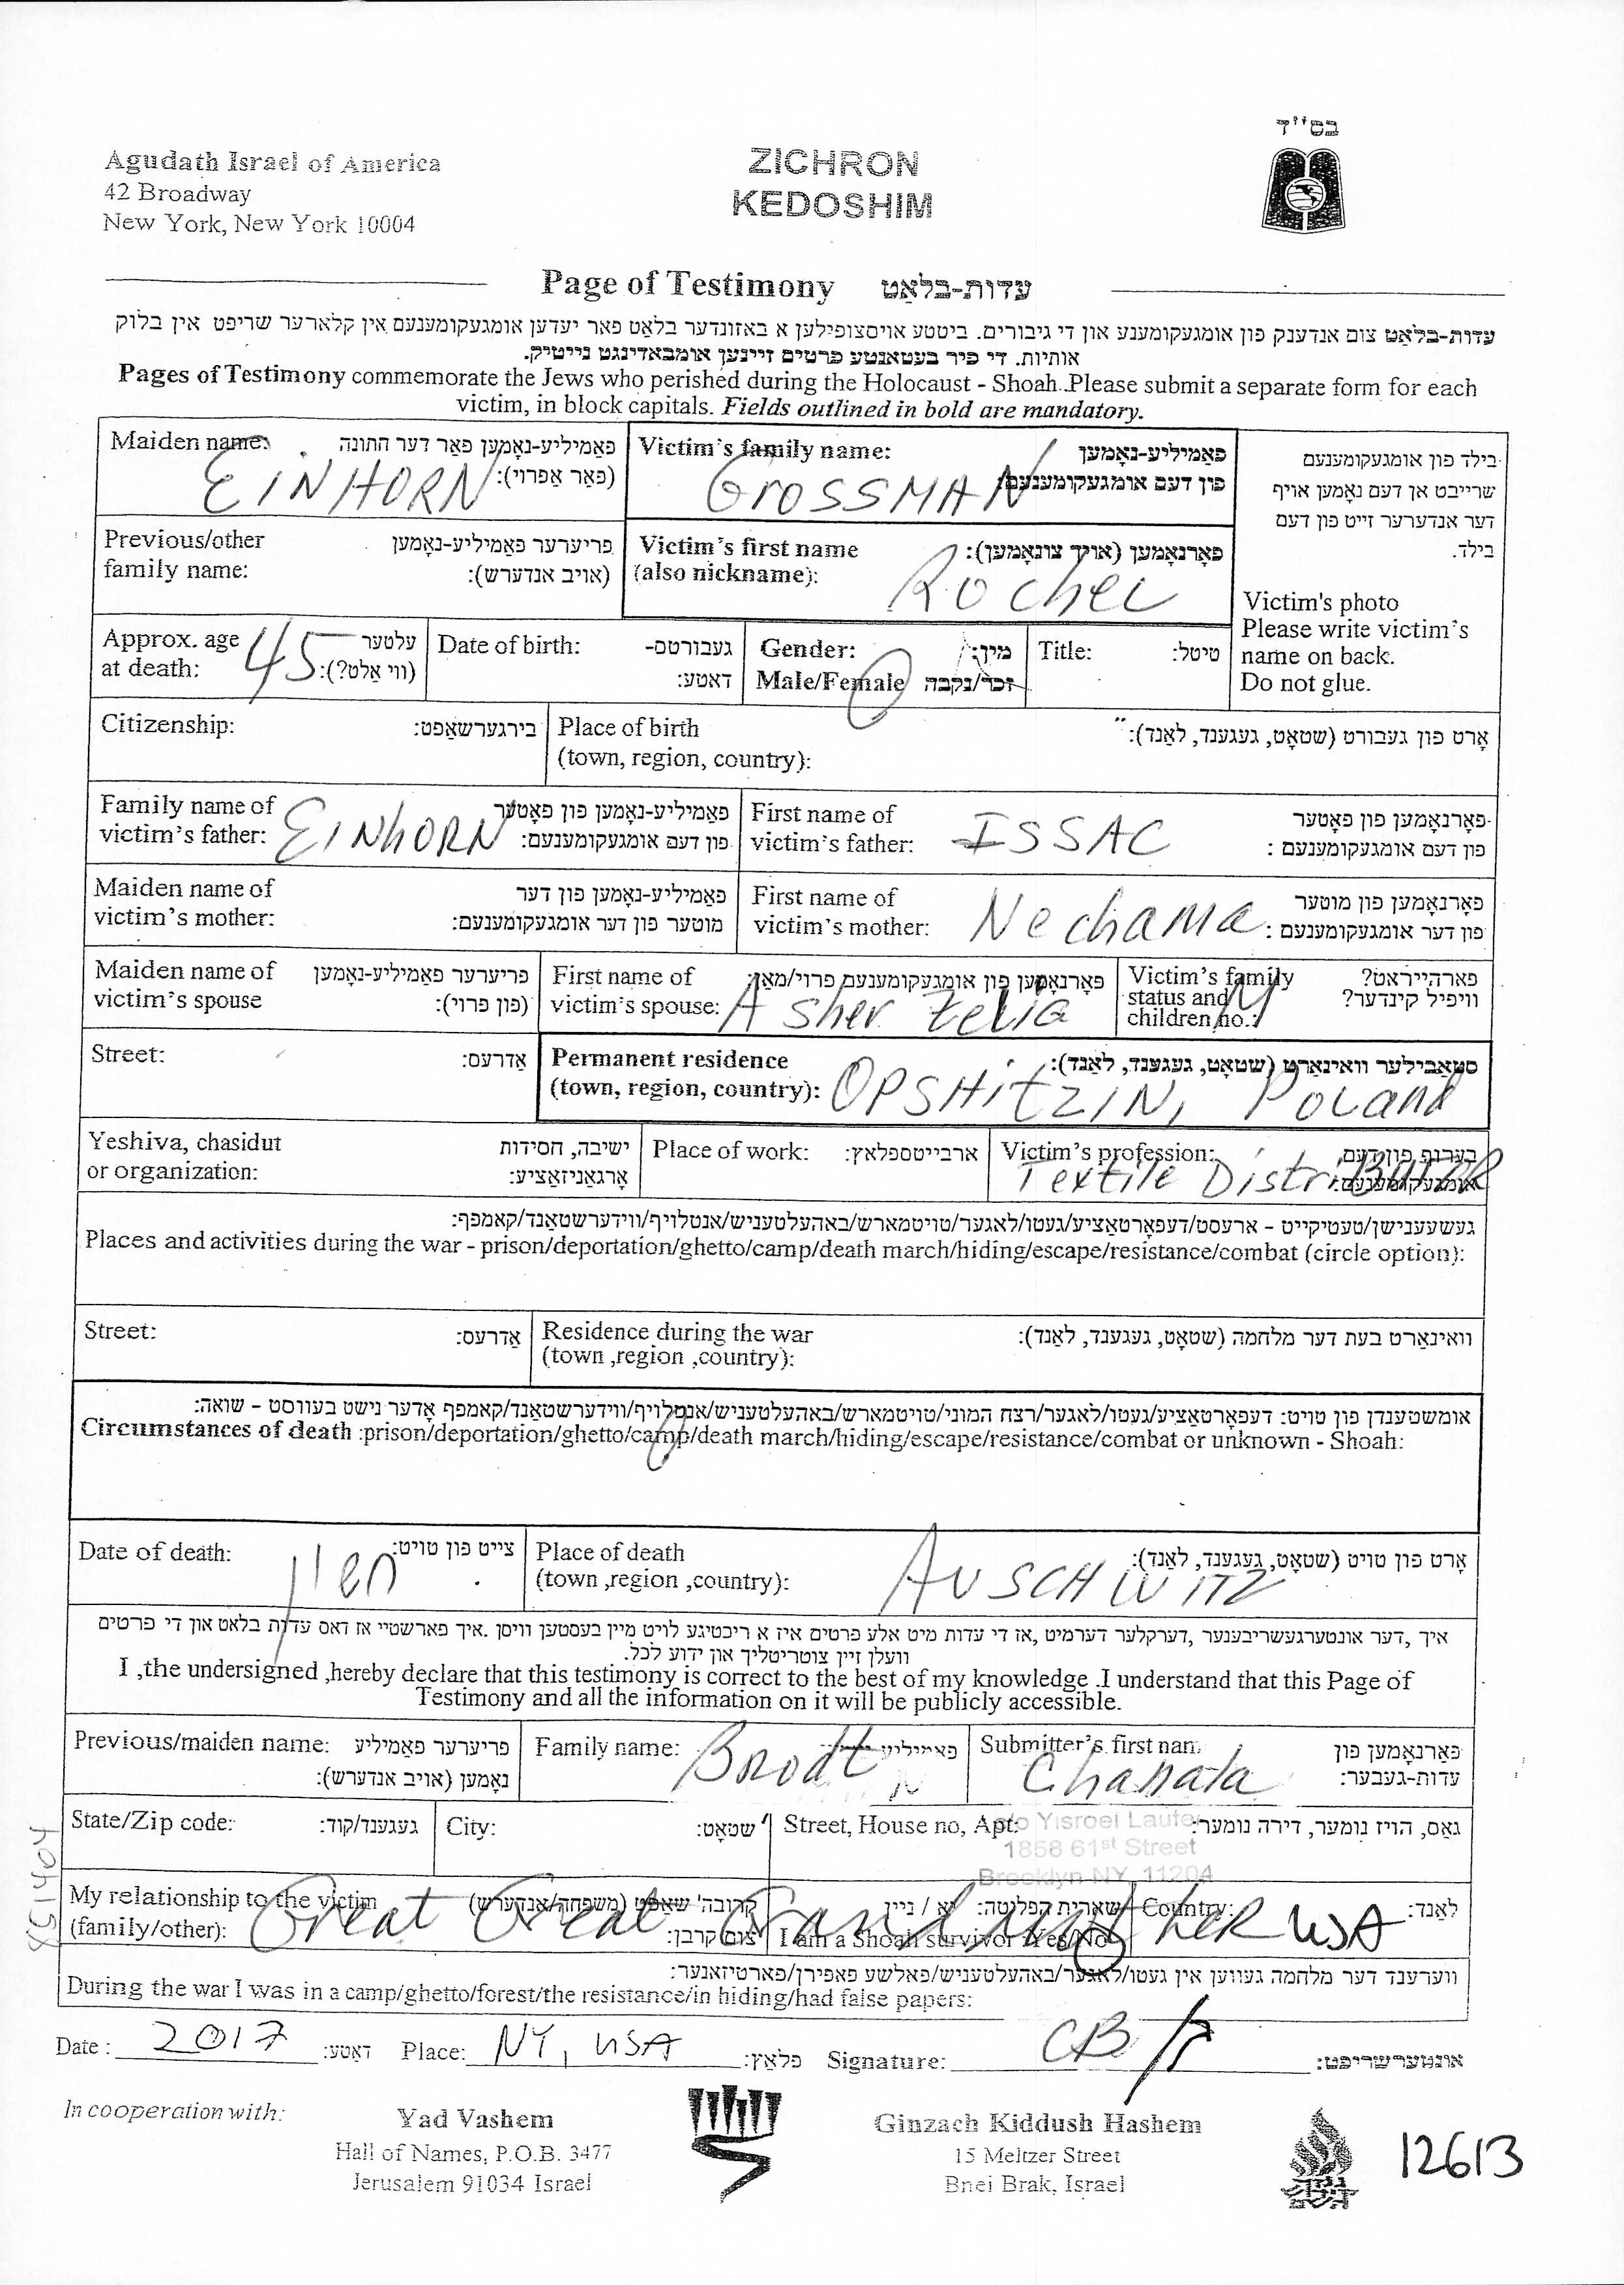 בס"ד
Agudath Israel of America
42 Broadway
New York, New York 10004
ZICHRON
KEDOSHIM
Page of Testimony עדות-בלאַט
עדות-בלאַט צום אנדענק פון אומגעקומענע און די גיבורים. ביטע אויסצופילען א באזונדער בלאַט פאר יעדען אומגעקומענעם אין קלארער שריפט אין בלוק
אותיות. די פיר בעטאָנטע פרטים זיינען אומבאדינגט נייטיק.
Pages of Testimony commemorate the Jews who perished during the Holocaust - Shoah. Please submit a separate form for each
victim, in block capitals. Fields outlined in bold are mandatory.
Maiden name: פאַמיליע-נאָמען פאַר דער חתונה
(פאַר אַפרוי):
EINHORN
Victim's family name: פאַמיליע-נאָמען
פון דעם אומגעקומענעם:
GROSSMAN
בילד פון אומגעקומענעם
שרייבט אן דעם נאָמען אויף
דער אנדערער זייט פון דעם
בילד.
Victim's photo
Please write victim's
name on back.
Do not glue.
Previous/other פריערער פאַמיליע-נאָמען
family name: (אויב אנדערש):
Victim's first name פאָרנאָמען (אויך צונאָמען):
(also nickname):
Rochel
Approx. age עלטער
at death: (ווי אַלט?):
45
Date of birth: געבורטס-
דאַטע:
Gender: מין:
Male/Female זכר/נקבה
Title: טיטל:
Citizenship: בירגערשאַפט:
Place of birth אָרט פון געבורט (שטאָט, געגענד, לאַנד):
(town, region, country):
Family name of פאַמיליע-נאָמען פון פאָטער
victim's father: פון דעם אומגעקומענעם:
EINHORN
First name of פאָרנאָמען פון פאָטער
victim's father: פון דעם אומגעקומענעם :
ISSAC
Maiden name of פאַמיליע-נאָמען פון דער
victim's mother: מוטער פון דער אומגעקומענעם:
First name of פאָרנאָמען פון מוטער
victim's mother: פון דער אומגעקומענעם :
Nechama
Maiden name of פריערער פאַמיליע-נאָמען
victim's spouse (פון פרוי):
First name of פאָרנאָמען פון אומגעקומענעם פרוי/מאַן:
victim's spouse:
Asher Zelig
Victim's family פארהייראט?
status and וויפיל קינדער?
children no.:
M
Street: אַדרעס:
Permanent residence סטאַבילער וואוינאַרט (שטאָט, געגענד, לאַנד):
(town, region, country):
OPSHITZIN, POLand
Yeshiva, chasidut ישיבה, חסידות
or organization: אָרגאַניזאַציע:
Place of work: ארבייטספלאץ:
Victim's profession: בערוף פון דעם
אומגעקומענעם:
Textile DistriBUTER
געשעענישן/טעטיקייט - ארעסט/דעפּאָרטאַציע/געטו/לאַגער/טויטמארש/באהעלטעניש/אנטלויף/ווידערשטאַנד/קאמפף:
Places and activities during the war - prison/deportation/ghetto/camp/death march/hiding/escape/resistance/combat (circle option):
Street: אַדרעס:
Residence during the war וואוינאַרט בעת דער מלחמה (שטאָט, געגענד, לאַנד):
(town ,region ,country):
אומשטענדן פון טויט: דעפּאָרטאַציע/געטו/לאגער/רצח המוני/טויטמארש/באהעלטעניש/אנטלויף/ווידערשטאַנד/קאמפף אָדער נישט בעוואוסט - שואה:
Circumstances of death :prison/deportation/ghetto/camp/death march/hiding/escape/resistance/combat or unknown - Shoah:
Date of death: צייט פון טויט:
Place of death אָרט פון טויט (שטאָט, געגענד, לאַנד):
(town ,region ,country):
AUSCHWITZ
איך ,דער אונטערגעשריבענער ,דערקלער דערמיט ,אז די עדות מיט אלע פרטים איז א ריכטיגע לויט מיין בעסטען וויסן .איך פארשטיי אז דאס עדות בלאט און די פרטים
וועלן זיין צוטריטליך און ידוע לכל.
I ,the undersigned ,hereby declare that this testimony is correct to the best of my knowledge .I understand that this Page of
Testimony and all the information on it will be publicly accessible.
Previous/maiden name: פריערער פאַמיליע
נאָמען (אויב אנדערש):
Family name:
Brodt
Submitter's first nam פאַרנאָמען פון
עדות-געבער:
Chanala
State/Zip code: געגענד/קוד:
City: שטאָט:
Street, House no, Apt: גאַס, הויז נומער, דירה נומער:
c/o Yisroel Laufer
1858 61st Street
Brooklyn NY 11204
My relationship to the victim קרובה' שאַפט (משפחה/אנדערש)
(family/other): צום קרבן:
Great Great Grandmother
שארית הפליטה: יא / ניין
I am a Shoah survivor Yes/No
Country: לאַנד:
USA
ווערענד דער מלחמה געווען אין געטו/לאגער/באהעלטעניש/פאלשע פאפירן/פארטיזאנער:
During the war I was in a camp/ghetto/forest/the resistance/in hiding/had false papers:
Date : 2017 דאַטע: Place: NY, USA פלאַץ: Signature: CB אונטערשריפט:
In cooperation with:
Yad Vashem
Hall of Names, P.O.B. 3477
Jerusalem 91034 Israel
Ginzach Kiddush Hashem
15 Meltzer Street
Bnei Brak, Israel
12613
851404